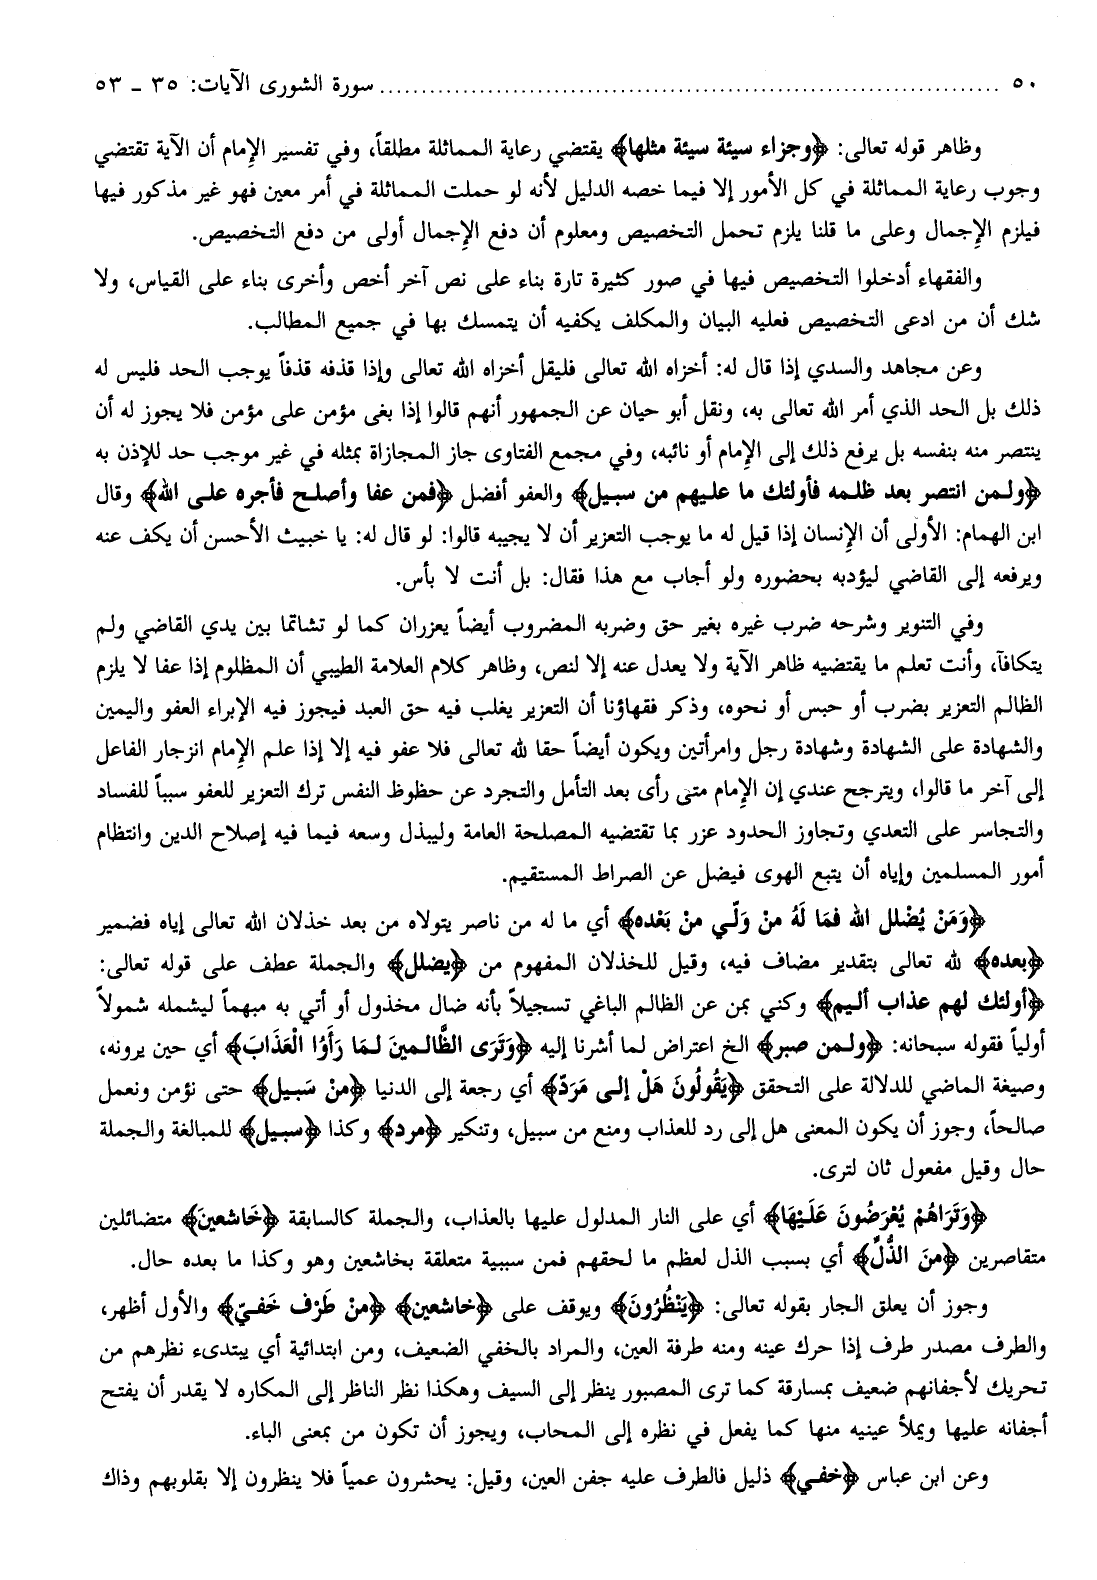 ٥٠ ........................................................................... سورة الشورى الآيات: ٣٥ ـ ٥٣
وظاهر قوله تعالى: ﴿وجزاء سيئة سيئة مثلها﴾ يقتضي رعاية المماثلة مطلقاً، وفي تفسير الإمام أن الآية تقتضي
وجوب رعاية المماثلة في كل الأمور إلا فيما خصه الدليل لأنه لو حملت المماثلة في أمر معين فهو غير مذكور فيها
فيلزم الإجمال وعلى ما قلنا يلزم تحمل التخصيص ومعلوم أن دفع الإجمال أولى من دفع التخصيص.
والفقهاء أدخلوا التخصيص فيها في صور كثيرة تارة بناء على نص آخر أخص وأخرى بناء على القياس، ولا
شك أن من ادعى التخصيص فعليه البيان والمكلف يكفيه أن يتمسك بها في جميع المطالب.
وعن مجاهد والسدي إذا قال له: أخزاه الله تعالى فليقل أخزاه الله تعالى وإذا قذفه قذفاً يوجب الحد فليس له
ذلك بل الحد الذي أمر الله تعالى به، ونقل أبو حيان عن الجمهور أنهم قالوا إذا بغى مؤمن على مؤمن فلا يجوز له أن
ينتصر منه بنفسه بل يرفع ذلك إلى الإمام أو نائبه، وفي مجمع الفتاوى جاز المجازاة بمثله في غير موجب حد للإذن به
﴿ولمن انتصر بعد ظلمه فأولئك ما عليهم من سبيل﴾ والعفو أفضل ﴿فمن عفا وأصلح فأجره على الله﴾ وقال
ابن الهمام: الأولى أن الإنسان إذا قيل له ما يوجب التعزير أن لا يجيبه قالوا: لو قال له: يا خبيث الأحسن أن يكف عنه
ويرفعه إلى القاضي ليؤدبه بحضوره ولو أجاب مع هذا فقال: بل أنت لا بأس.
وفي التنوير وشرحه ضرب غيره بغير حق وضربه المضروب أيضاً يعزران كما لو تشاتما بين يدي القاضي ولم
يتكافآ، وأنت تعلم ما يقتضيه ظاهر الآية ولا يعدل عنه إلا لنص، وظاهر كلام العلامة الطيبي أن المظلوم إذا عفا لا يلزم
الظالم التعزير بضرب أو حبس أو نحوه، وذكر فقهاؤنا أن التعزير يغلب فيه حق العبد فيجوز فيه الإبراء العفو واليمين
والشهادة على الشهادة وشهادة رجل وامرأتين ويكون أيضاً حقا لله تعالى فلا عفو فيه إلا إذا علم الإمام انزجار الفاعل
إلى آخر ما قالوا، ويترجح عندي إن الإمام متى رأى بعد التأمل والتجرد عن حظوظ النفس ترك التعزير للعفو سبباً للفساد
والتجاسر على التعدي وتجاوز الحدود عزر بما تقتضيه المصلحة العامة وليبذل وسعه فيما فيه إصلاح الدين وانتظام
أمور المسلمين وإياه أن يتبع الهوى فيضل عن الصراط المستقيم.
﴿وَمَنْ يُضْلل الله فمَا لَهُ منْ وَلّي منْ بَعْده﴾ أي ما له من ناصر يتولاه من بعد خذلان الله تعالى إياه فضمير
﴿بعده﴾ لله تعالى بتقدير مضاف فيه، وقيل للخذلان المفهوم من ﴿يضلل﴾ والجملة عطف على قوله تعالى:
﴿أولئك لهم عذاب أليم﴾ وكني بمن عن الظالم الباغي تسجيلاً بأنه ضال مخذول أو أتي به مبهماً ليشمله شمولاً
أولياً فقوله سبحانه: ﴿ولمن صبر﴾ الخ اعتراض لما أشرنا إليه ﴿وَتَرَى الظَّالمينَ لمَا رَأَوُا الْعَذَابَ﴾ أي حين يرونه،
وصيغة الماضي للدلالة على التحقق ﴿يَقُولُونَ هَلْ إلى مَرَدّ﴾ أي رجعة إلى الدنيا ﴿منْ سَبيل﴾ حتى نؤمن ونعمل
صالحاً، وجوز أن يكون المعنى هل إلى رد للعذاب ومنع من سبيل، وتنكير ﴿مرد﴾ وكذا ﴿سبيل﴾ للمبالغة والجملة
حال وقيل مفعول ثان لترى.
﴿وَتَرَاهُمْ يُعْرَضُونَ عَلَيْهَا﴾ أي على النار المدلول عليها بالعذاب، والجملة كالسابقة ﴿خَاشعينَ﴾ متضائلين
متقاصرين ﴿منَ الذُّلِّ﴾ أي بسبب الذل لعظم ما لحقهم فمن سببية متعلقة بخاشعين وهو وكذا ما بعده حال.
وجوز أن يعلق الجار بقوله تعالى: ﴿يَنْظُرُونَ﴾ ويوقف على ﴿خاشعين﴾ ﴿منْ طَرْف خَفيّ﴾ والأول أظهر،
والطرف مصدر طرف إذا حرك عينه ومنه طرفة العين، والمراد بالخفي الضعيف، ومن ابتدائية أي يبتدىء نظرهم من
تحريك لأجفانهم ضعيف بمسارقة كما ترى المصبور ينظر إلى السيف وهكذا نظر الناظر إلى المكاره لا يقدر أن يفتح
أجفانه عليها ويملأ عينيه منها كما يفعل في نظره إلى المحاب، ويجوز أن تكون من بمعنى الباء.
وعن ابن عباس ﴿خفي﴾ ذليل فالطرف عليه جفن العين، وقيل: يحشرون عمياً فلا ينظرون إلا بقلوبهم وذاك